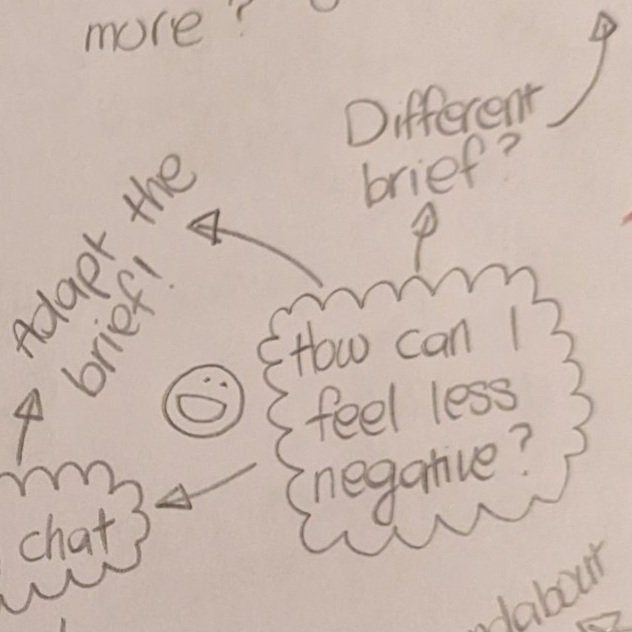 more?
Different
brief?
Adapt the
brief!
How can I
feel less
negative?
chat